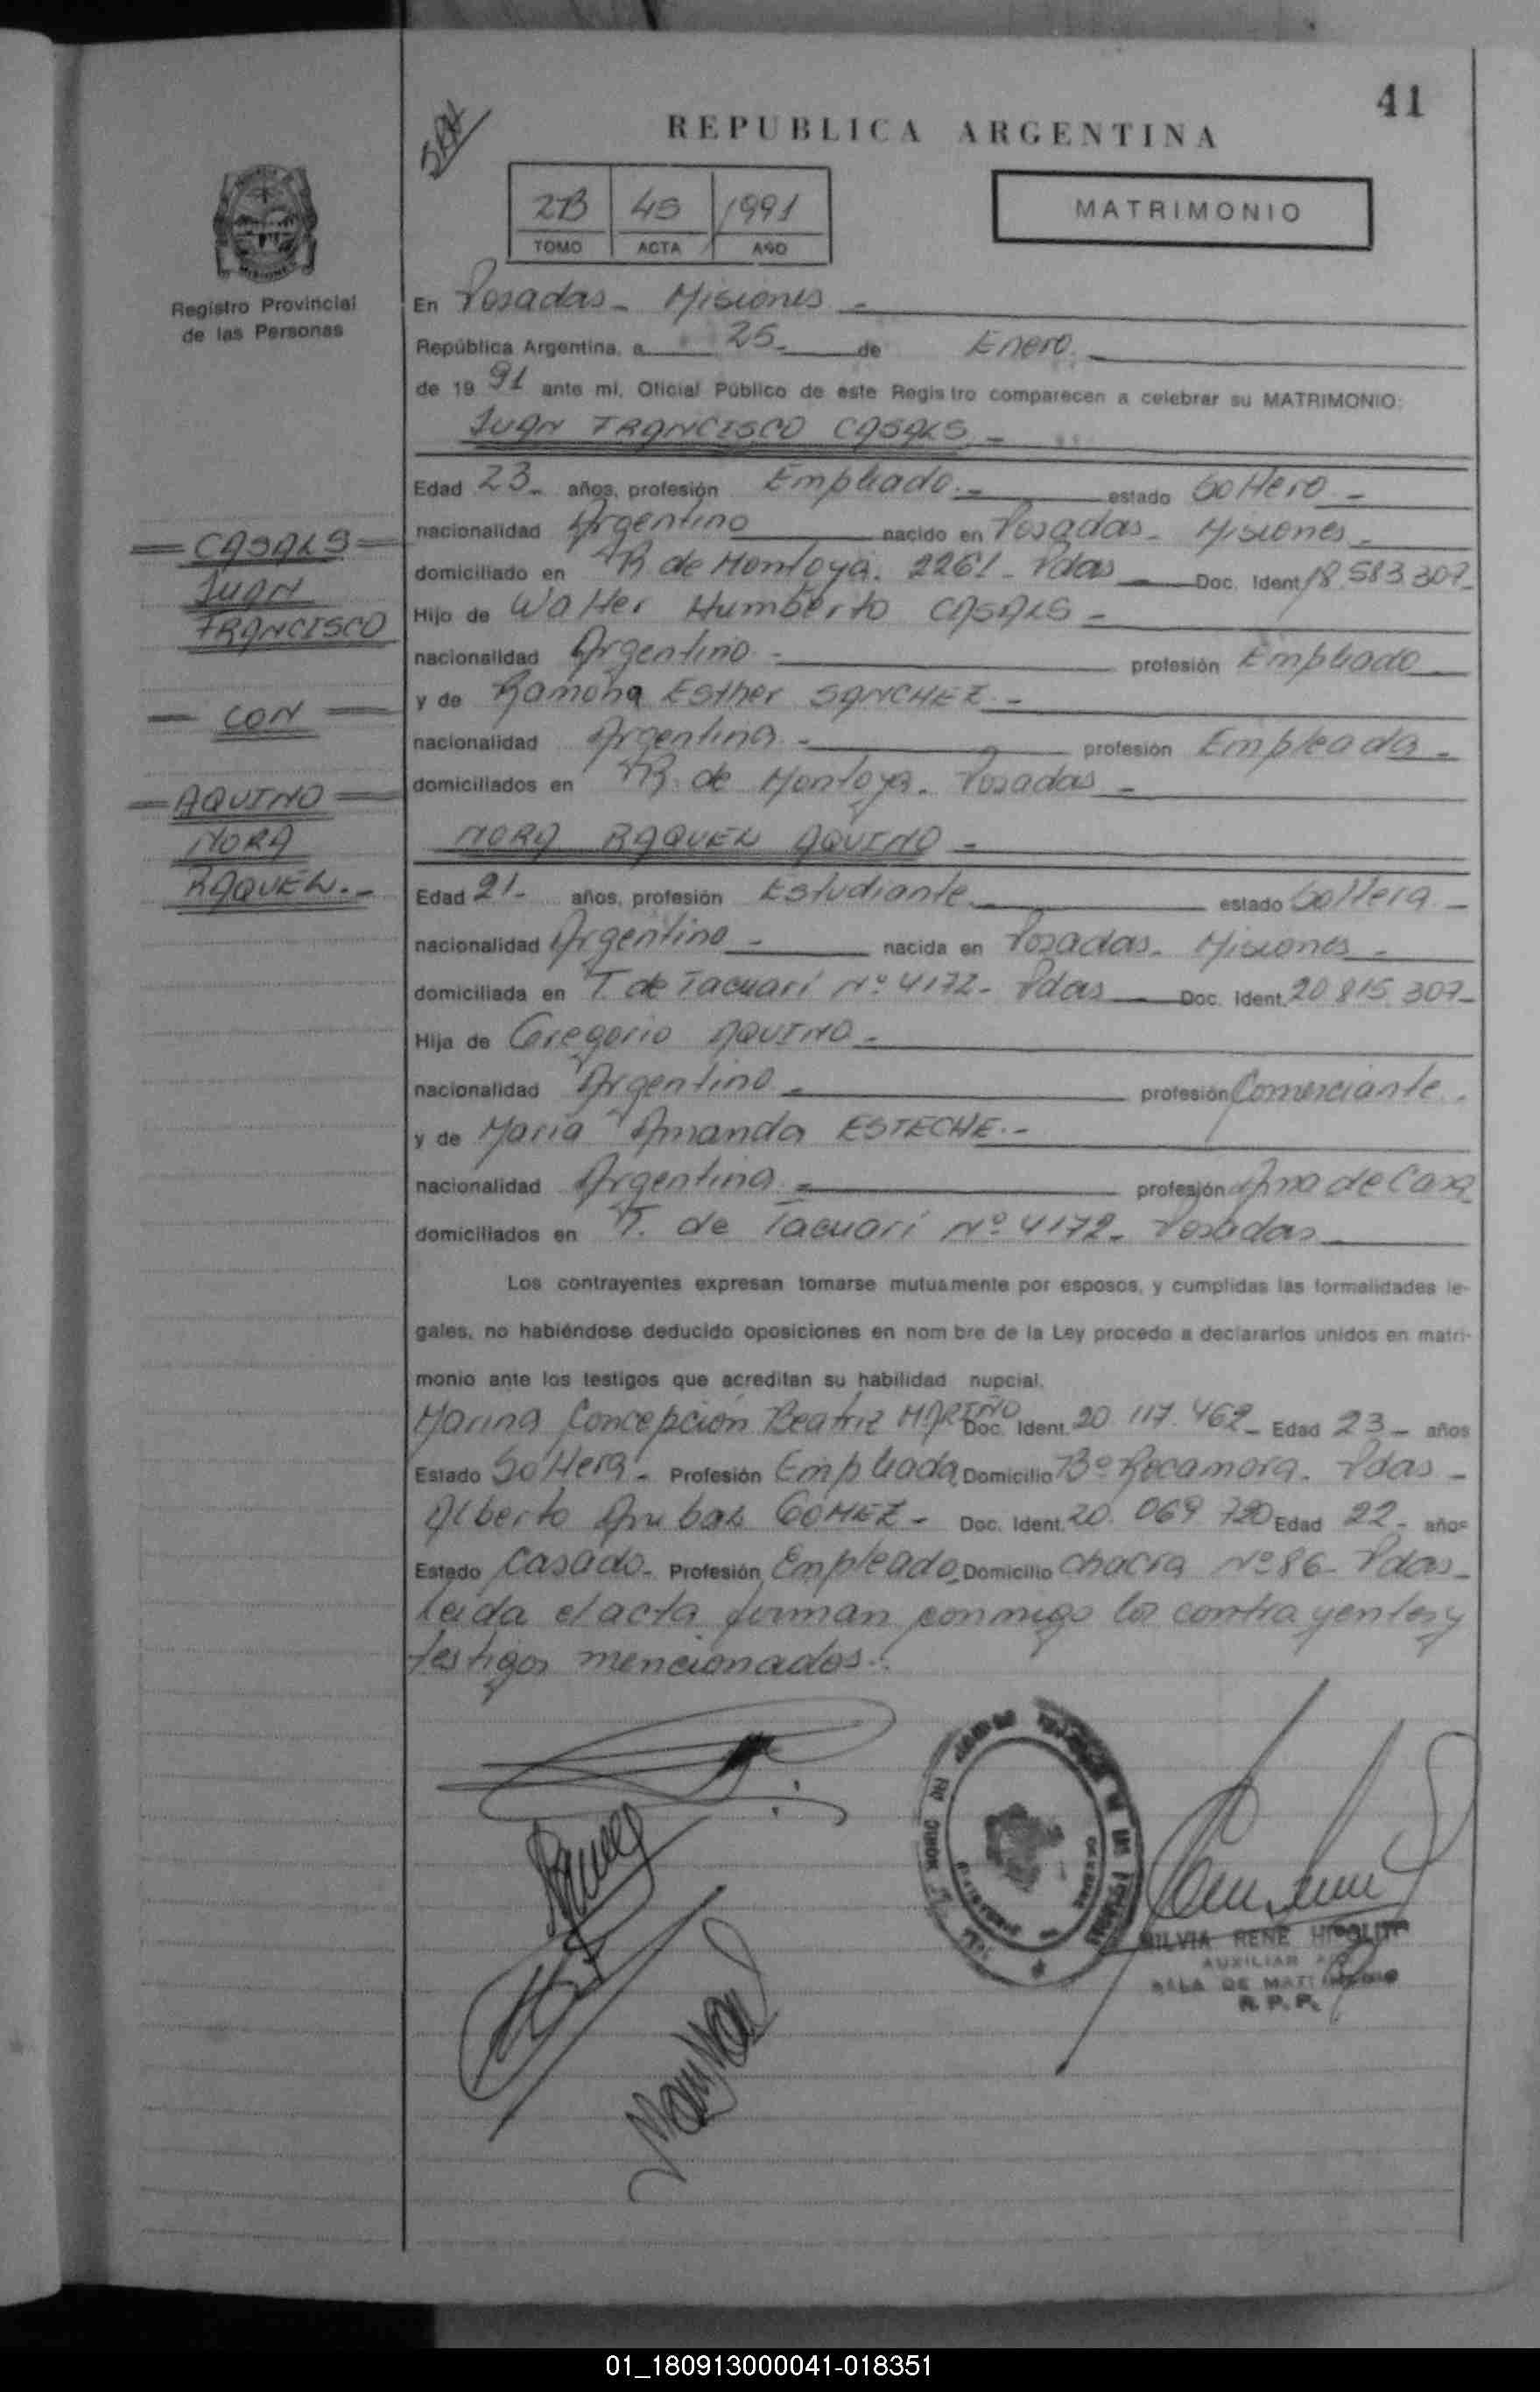 41
REPUBLICA ARGENTINA
2B 45 1991
TOMO ACTA AÑO
MATRIMONIO
Registro Provincial
de las Personas
En Posadas - Misiones -
República Argentina, a 25 - de Enero -
de 19 91 ante mi, Oficial Público de este Registro comparecen a celebrar su MATRIMONIO:
JUAN FRANCISCO CASALS -
Edad 23 - años, profesión Empleado - estado Soltero -
nacionalidad Argentino nacido en Posadas - Misiones -
domiciliado en R de Montoya. 2261 - Pdas Doc. Ident 18.583.307 -
Hijo de Walter Humberto CASALS -
nacionalidad Argentino - profesión Empleado
y de Ramona Esther SANCHEZ -
nacionalidad Argentina - profesión Empleada -
domiciliados en R. de Montoya - Posadas -
NORA RAQUEL AQUINO -
Edad 21 - años, profesión Estudiante estado Soltera -
nacionalidad Argentina - nacida en Posadas - Misiones -
domiciliada en T. de Tacuarí Nº 4172 - Pdas Doc. Ident. 20.815.307 -
Hija de Gregorio AQUINO -
nacionalidad Argentino - profesión Comerciante.
y de María Amanda ESTECHE. -
nacionalidad Argentina - profesión Ama de Casa
domiciliados en T. de Tacuarí Nº 4172 - Posadas
Los contrayentes expresan tomarse mutuamente por esposos, y cumplidas las formalidades le-
gales, no habiéndose deducido oposiciones en nom bre de la Ley procedo a declararlos unidos en matri-
monio ante los testigos que acreditan su habilidad nupcial.
Marina Concepción Beatriz MARIÑO Doc. Ident. 20.117.462 - Edad 23 - años
Estado Soltera - Profesión Empleada Domicilio Bº Rocamora - Pdas -
Alberto GOMEZ - Doc. Ident. 20.069.720 Edad 22 - años
Estado Casado - Profesión Empleado Domicilio Chacra Nº 86 - Pdas -
Leida el acta firman conmigo los contrayentes y
testigos mencionados.
CASALS
JUAN
FRANCISCO
CON
AQUINO
NORA
RAQUEL. -
SILVIA RENE HIPOLITA
AUXILIAR
SALA DE MATRIMONIO
R. P. P.
01_180913000041-018351